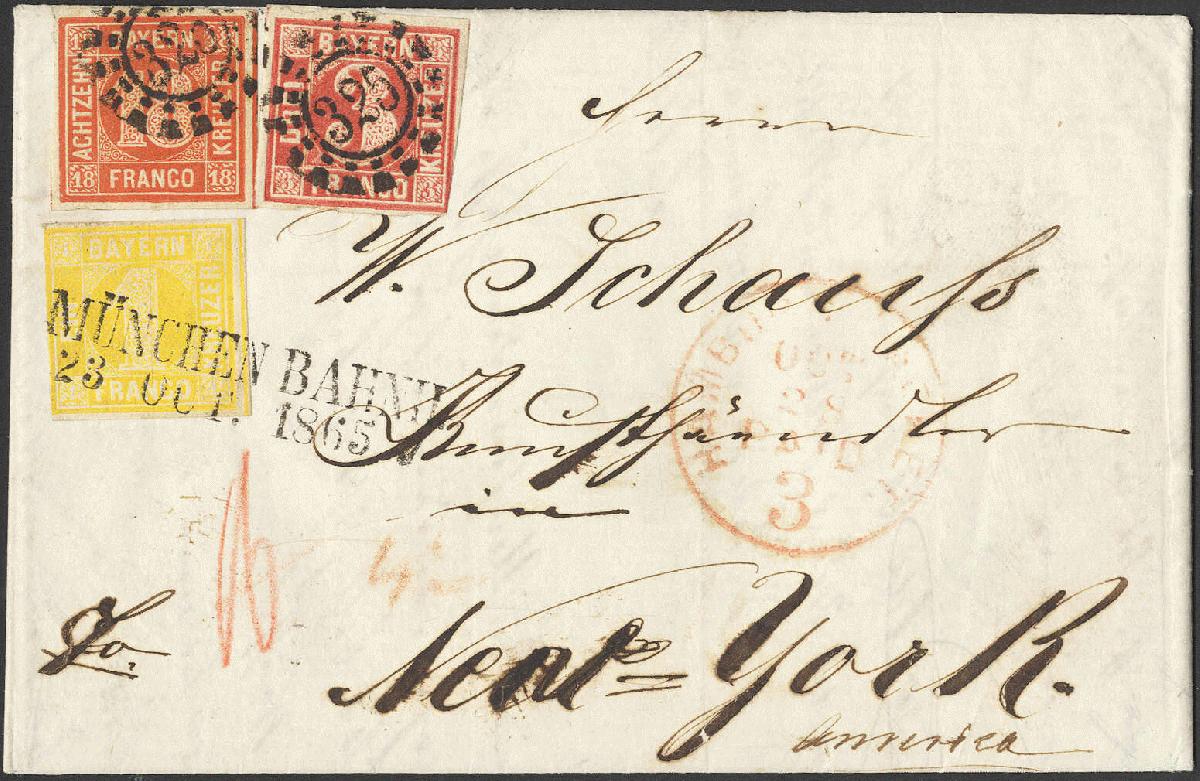 BAYERN
ACHTZEHN
18
KREUZER
18 FRANCO 18
325
BAYERN
DREI
KREUZER
FRANCO
325
BAYERN
1
KREUZER
FRANCO
MÜNCHEN BAHNH.
23 OCT. 1865
Herrn
W. Schauss
Kunsthändler
in
New-York.
America
fo.
PAID
3